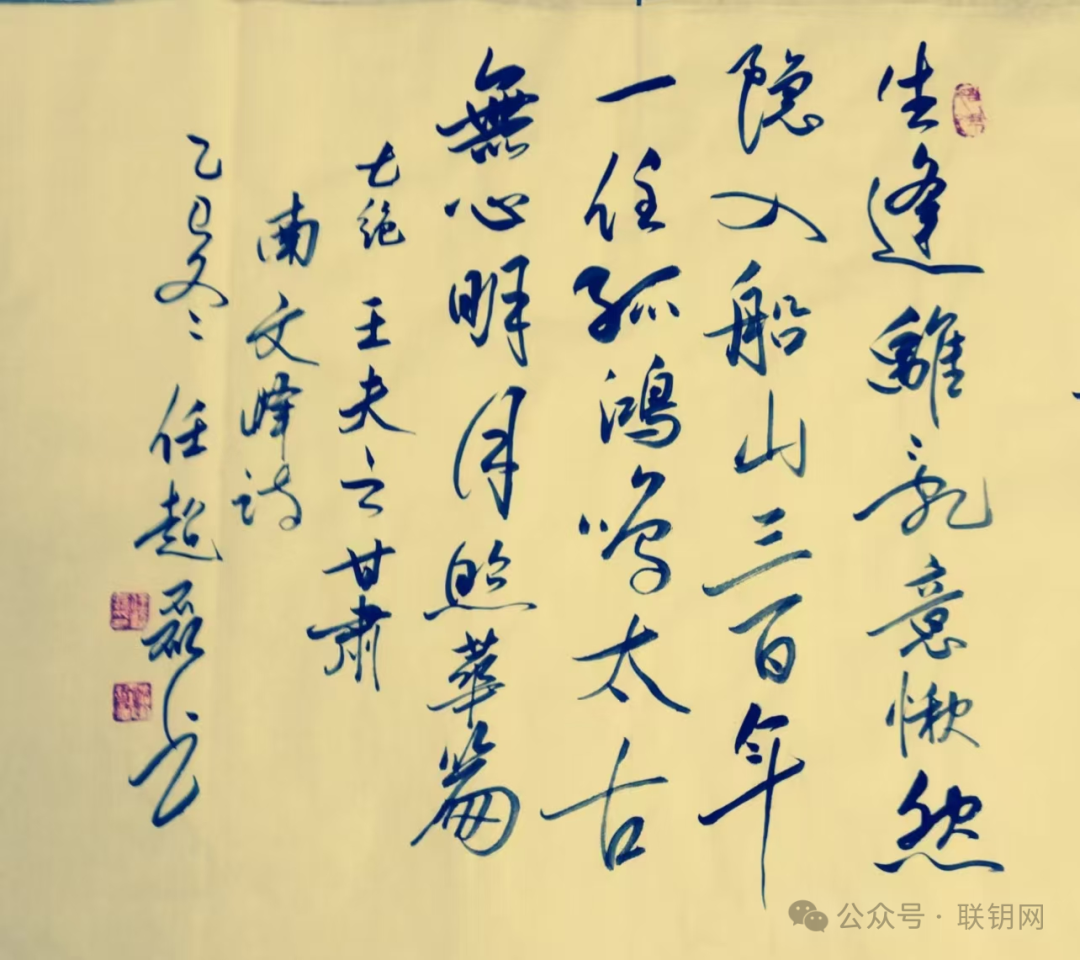 生逢離乱意愀然
隐入船山三百年
一任孤鴻鸣太古
無心明月照華篇
七絶 王夫之 甘肅
南文峰詩
乙巳冬 任超磊书
公众号 · 联钥网